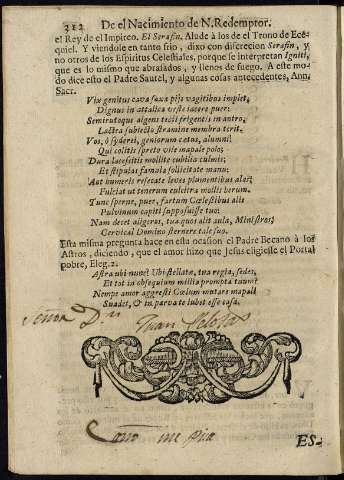 312 De el Nacimiento de N. Redemptor.
el Rey de el Impireo. El Serafin. Alude à los de el Trono de Ece-
quiel. Y viendole en tanto frio, dixo con discrecion Serafin, y
no otros de los Espiritus Celestiales, porque se interpretan Igniti,
que es lo mismo que abrasados, y llenos de fuego. A este mo-
do dice esto el Padre Sautel, y algunas cosas antecedentes, Ann.
Sacr.
Vix genitus cava saxa pijs vagitibus implet,
Dignus in attalica veste iacere puer:
Semirutoque algens tecti frigentis in antro,
Lactea subiecto stramine membra terit.
Vos, ò syderei, geniorum cœtus, alumni!
Qui colitis spreto vile mapale polo;
Dura lacessitis mollite cubilia culmis;
Et stipulas famula sollicitate manu:
Aut humeris resecate leves plaudentibus alas;
Fulciat ut tenerum culcitra mollis herum.
Tunc sperne, puer, fartum Cœlestibus alis
Pulvinum capiti supposuisse tuo:
Nam decet aligeros, tua quos alit aula, Ministros;
Cervical Domino sternere tale suo.
Esta misma pregunta hace en esta ocasion el Padre Becano à los
Astros, diciendo, que el amor hizo que Jesus eligiesse el Portal
pobre, Eleg. 2.
Astra ubi nunc? Ubi stellatæ, tua regia, sedes,
Et tot in obsequium millia prompta tuum?
Nempe amor aggresti Cœlum mutare mapali
Suadet, & in parva te iubet esse casa.
Juan
Como me pia
ES-